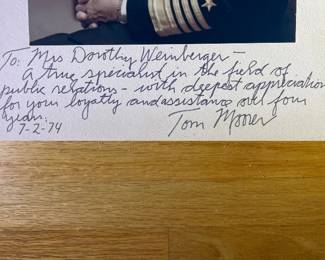 To: Mrs Dorothy Weinberger -
A true specialist in the field of
public relations - with deepest appreciation
for your loyalty and assistance over four
years.
7-2-74
Tom Moorer